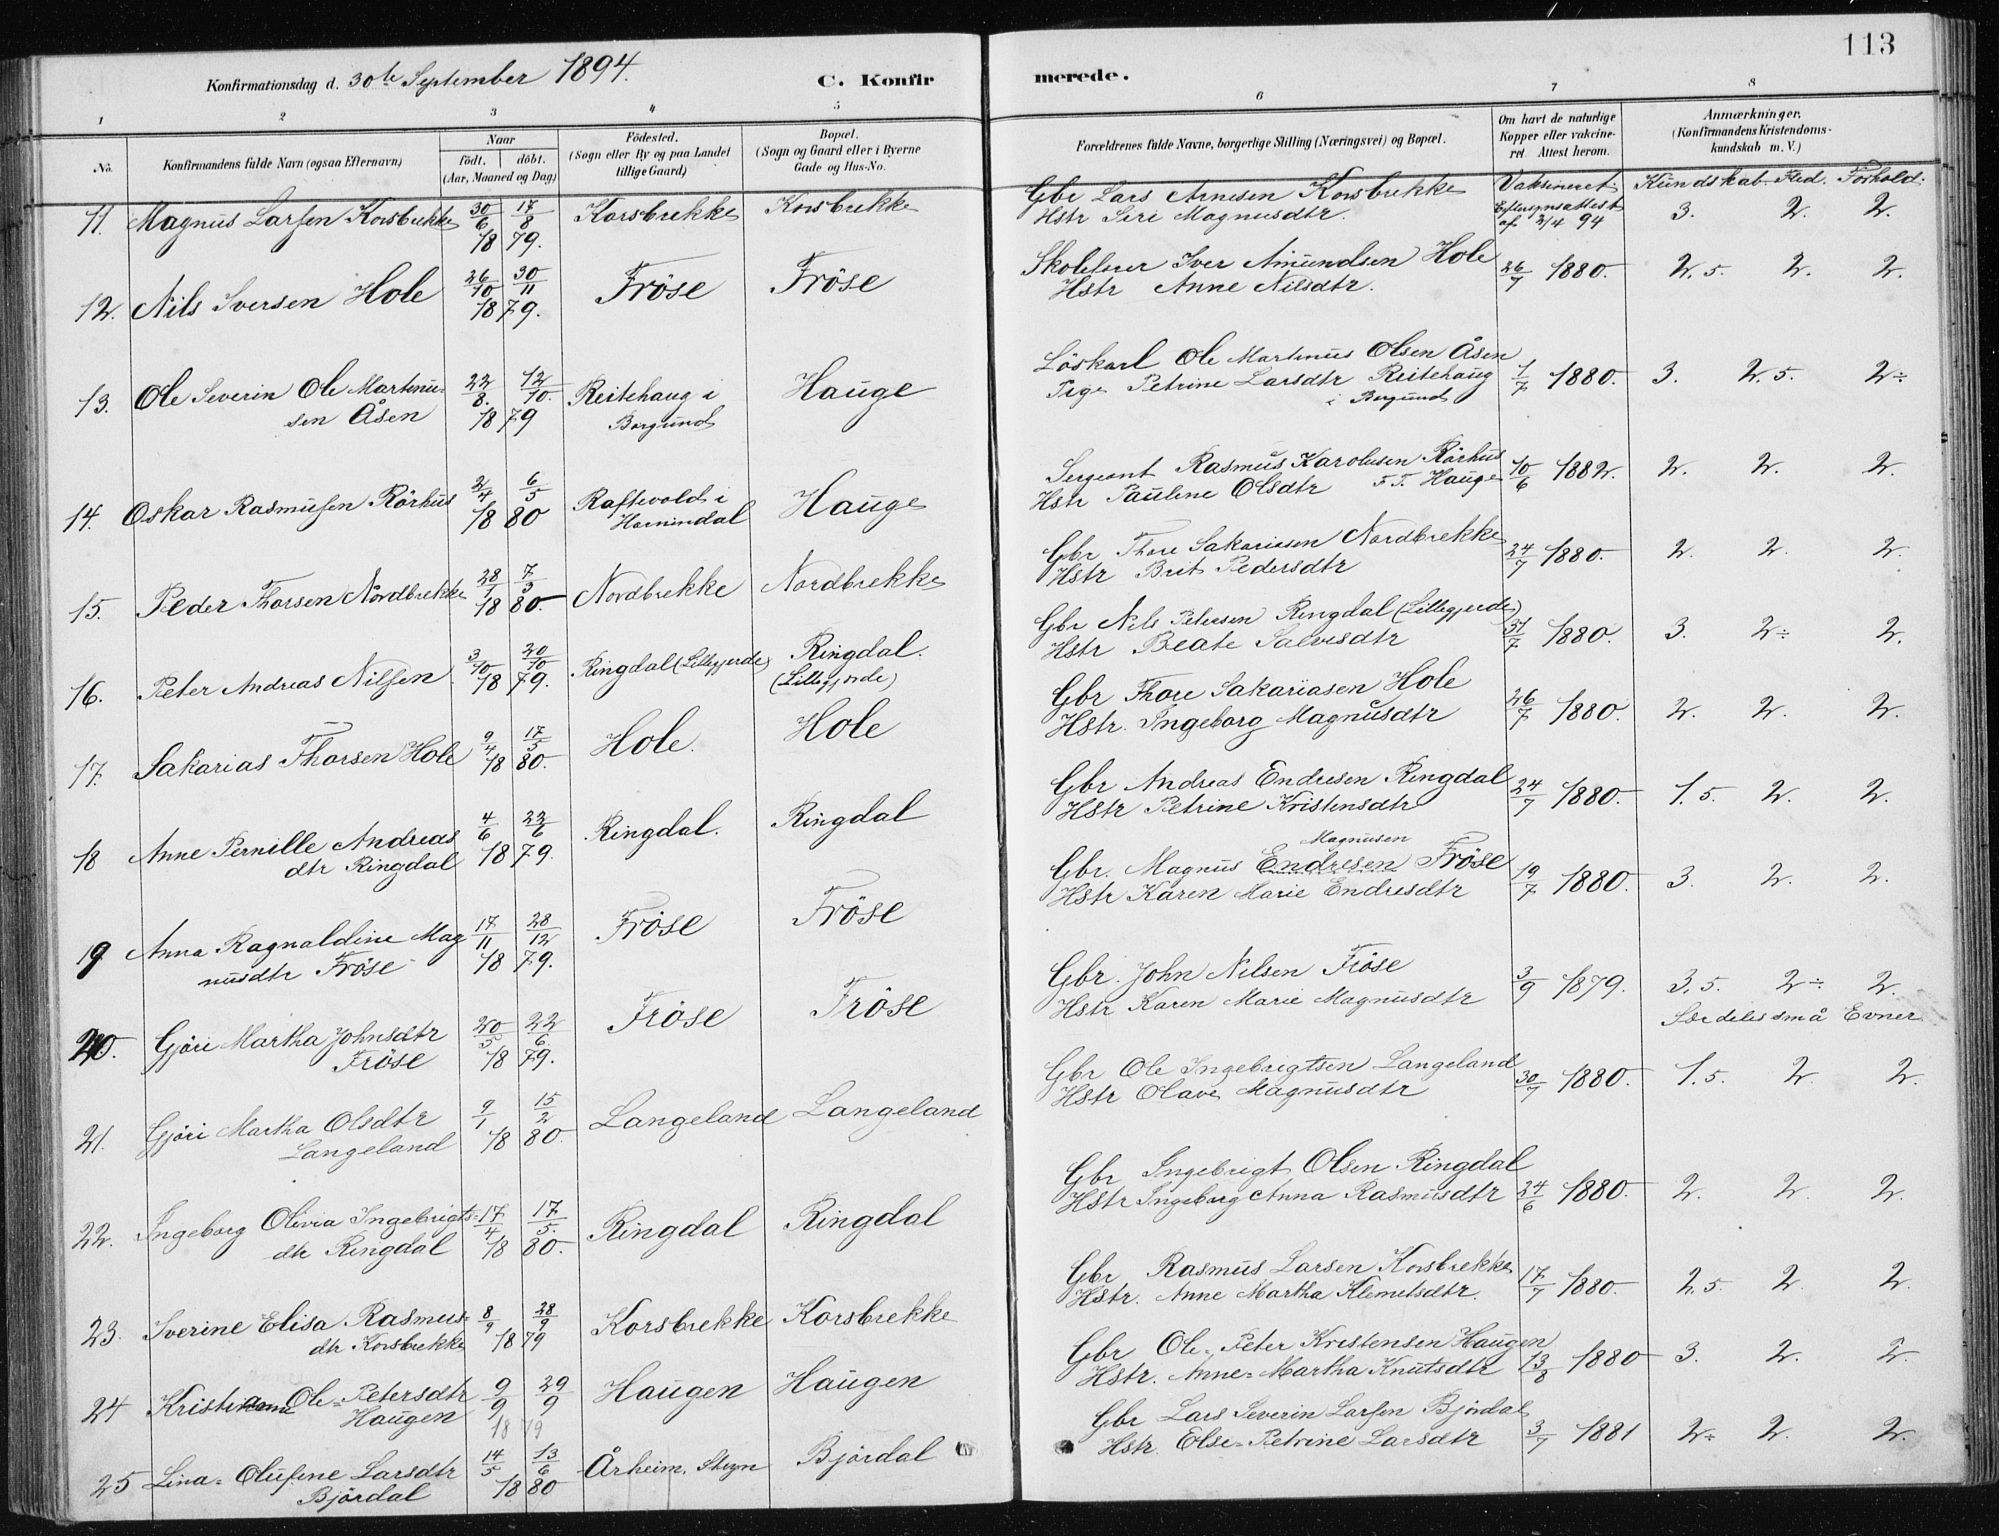 113
Konfirmationsdag d. 30te September 1894.
C. Konfirmerede.
1 2 3 4 5 6 7 8
No.
Konfirmandens fulde Navn (ogsaa Efternavn)
Naar
født. døbt.
(Aar, Maaned og Dag)
Fødested.
(Sogn eller By og paa Landet
tillige Gaard)
Bopæl.
(Sogn og Gaard eller i Byerne
Gade og Hus-No.
Forældrenes fulde Navne, borgerlige Stilling (Næringsvei) og Bopæl.
Om havt de naturlige
Kopper eller vakcine-
ret. Attest herom.
Anmærkninger.
(Konfirmandens Kristendoms-
kundskab m. V.)
Vaksineret Kundskab Flid. Forhold.
11. Magnus Larsen Korsbrekke 30/6 17/8 Korsbrekke Korsbrekke Gbr Lars Arnesen Korsbrekke Eftersynsattest 3. 2. 2.
18 79. Hstr Siri Magnusdtr. af 2/4 94
12. Nils Iversen Hole 26/10 30/11 Fröse Fröse Skolelærer Iver Amundsen Hole 26/7 1880. 2.5. 2. 2.
1879. Hstr Anne Nilsdtr.
13. Ole Severin Ole Martinu- 22/8. 12/10. Reitehaug i Hauge Löskarl Ole Martinus Olsen Åsen 1/7 1880. 3. 2.5. 2÷
sen Åsen 18 79 Borgund Pige Petrine Larsdtr Reitehaug
i Borgund
14. Oskar Rasmusen Rörhus 2/4 6/5 Raftevold i Hauge Sergeant Rasmus Karolusen Rörhus 10/6 1882. 2. 2. 2.
18 80 Hornindal Hstr Pauline Olsdtr F.T. Hauge
15. Peder Thorsen Nordbrekke 28/1 7/3 Nordbrekke Nordbrekke Gbr Thore Sakariasen Nordbrekke 24/7 1880. 2. 2. 2.
18 80. Hstr Brit Pedersdtr
16. Peter Andreas Nilsen 3/10 20/10 Ringdal (Lillegjerde) Ringdal. Gbr Nils Petersen Ringdal (Lillegjerde) 31/7 1880. 3. 2÷ 2.
18 79. (Lillegjerde) Hstr Beate Salvesdtr
17. Sakarias Thorsen Hole 9/4 17/5 Hole. Hole Gbr Thore Sakariasen Hole 26/7 1880. 2. 2. 2.
18 80. Hstr. Ingeborg Magnusdtr
18 Anne Pernille Andreas 4/6 22/6 Ringdal. Ringdal Gbr Andreas Endresen Ringdal 24/7 1880. 1.5. 2. 2.
dtr Ringdal 18 79. Hstr Petrine Kristensdtr
Magnusen
19 Anna Ragnaldine Mag 17/11 28/12 Fröse Fröse Gbr. Magnus Endresen Fröse 19/7 1880. 3. 2. 2.
nusdtr Fröse 18 79. Hstr Karen Marie Endresdtr
20. Gjöri Martha Johnsdtr 20/5 22/6. Fröse Fröse Gbr. John Nilsen Fröse 3/9 1879. 3.5. 2÷ 2.
Fröse 18 79. Hstr Karen Marie Magnusdtr Særdeles små Evner
21. Gjöri Martha Olsdtr 9/1 15/2 Langeland Langeland Gbr Ole Ingebrigtsen Langeland 30/7 1880. 1.5. 2. 2.
Langeland 18 80. Hstr Olave Magnusdtr
22. Ingeborg Olivia Ingebrigts- 17/4 17/5. Ringdal Ringdal Gbr Ingebrigt Olsen Ringdal 24/6 1880. 2. 2. 2.
dtr Ringdal 18 80. Hstr Ingeborg Anna Rasmusdtr
23. Sverine Elisa Rasmus- 8/9 28/9 Korsbrekke Korsbrekke Gbr Rasmus Larsen Korsbrekke 17/7 1880. 2.5 2. 2.
dtr Korsbrekke 18 79 Hstr. Anne Martha Klemetsdtr.
24 Ole-Petersdtr 9/9 29/9 Haugen Haugen Gbr Ole-Peter Kristensen Haugen 13/8 1880 3. 2. 2.
Haugen 18 79 Hstr. Anne-Martha Knutsdtr
25 Lina-Olufine Larsdtr 14/5 13/6 Årheim, Stryn Björdal Gbr Lars Severin Larsen Björdal 3/7 1881 2÷ 2. 2.
Björdal 18 80 Hstr. Else-Petrine Larsdtr